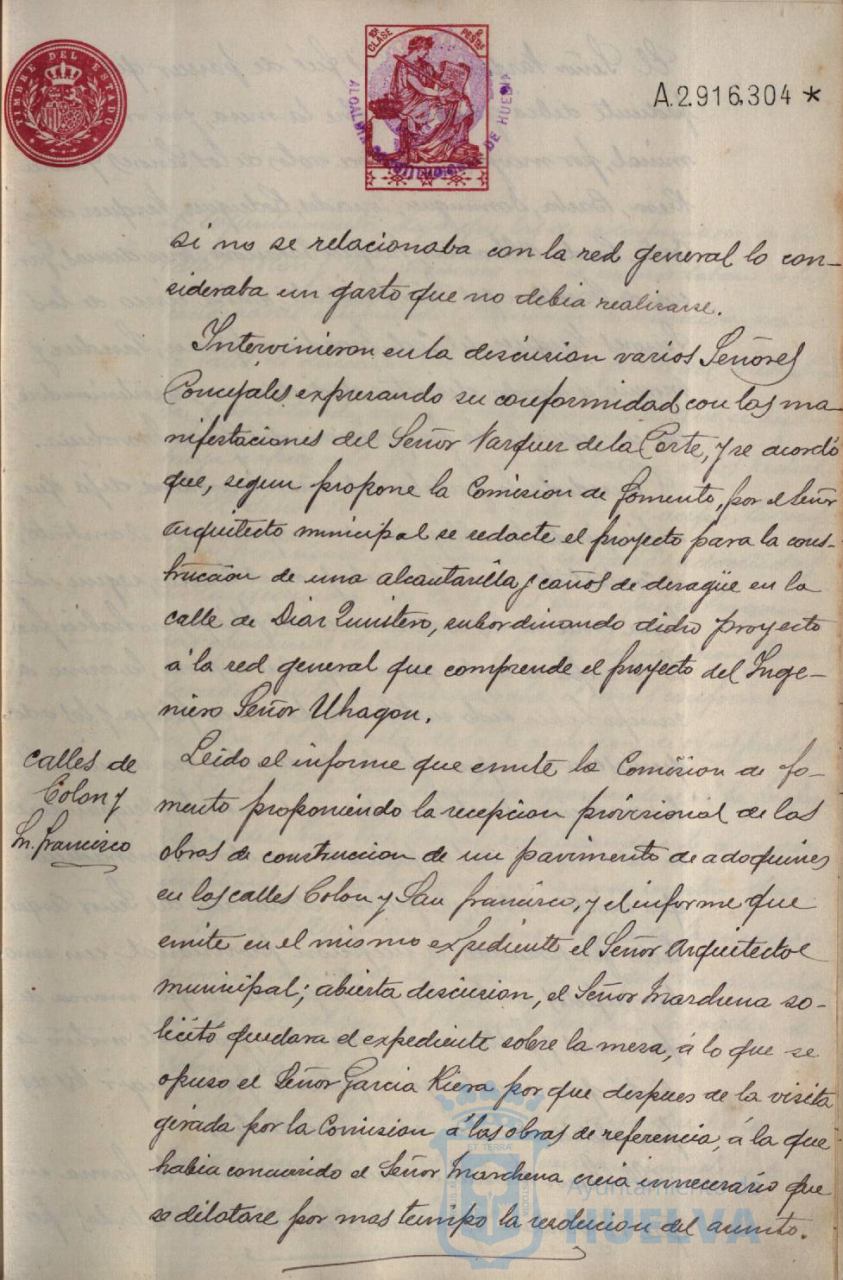 TIMBRE DEL ESTADO
10ª CLASE
2 PESTAS
ALCALDIA CONSTITUCIONAL DE HUELVA
A.2.916.304 *
si no se relacionaba con la red general lo con-
sideraba un gasto que no debia realizarse.
Intervinieron en la discusion varios Señores
Concejales expresando su conformidad con las ma-
nifestaciones del Señor Vazquez de la Corte, y se acordó
que, segun propone la Comision de fomento, por el Señor
Arquitecto municipal se redacte el proyecto para la cons-
trucción de una alcantarilla y caños de desagüe en la
calle de Diaz Quintero, subordinando dicho proyecto
á la red general que comprende el proyecto del Inge-
niero Señor Uhagon.
Calles de
Colon y
Sn. Francisco
Leido el informe que emite la Comision de fo-
mento proponiendo la recepcion provisional de las
obras de construccion de un pavimento de adoquines
en las calles Colon y San francisco, y el informe que
emite en el mismo expediente el Señor Arquitecto
municipal; abierta discusion, el Señor Marchena so-
licitó quedara el expediente sobre la mesa, á lo que se
opuso el Señor Garcia Riera por que despues de la visita
girada por la Comision á las obras de referencia, á la que
habia concurrido el Señor Marchena creia innecesario que
se dilatase por mas tiempo la resolucion del asunto.
Ayuntamiento
HUELVA